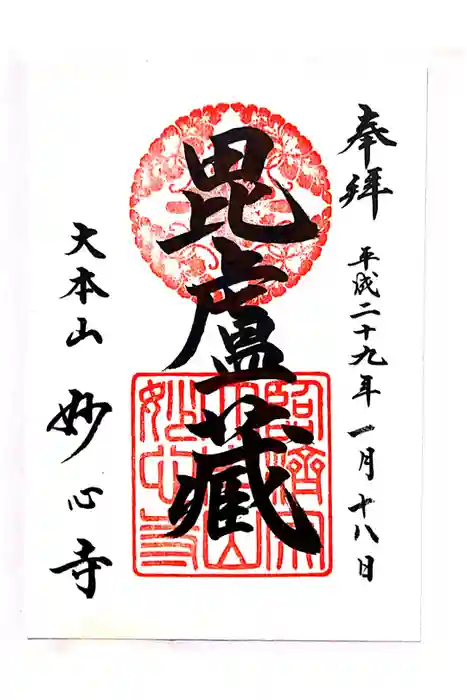 奉拝
平成二十九年一月十八日
毘盧藏
大本山 妙心寺